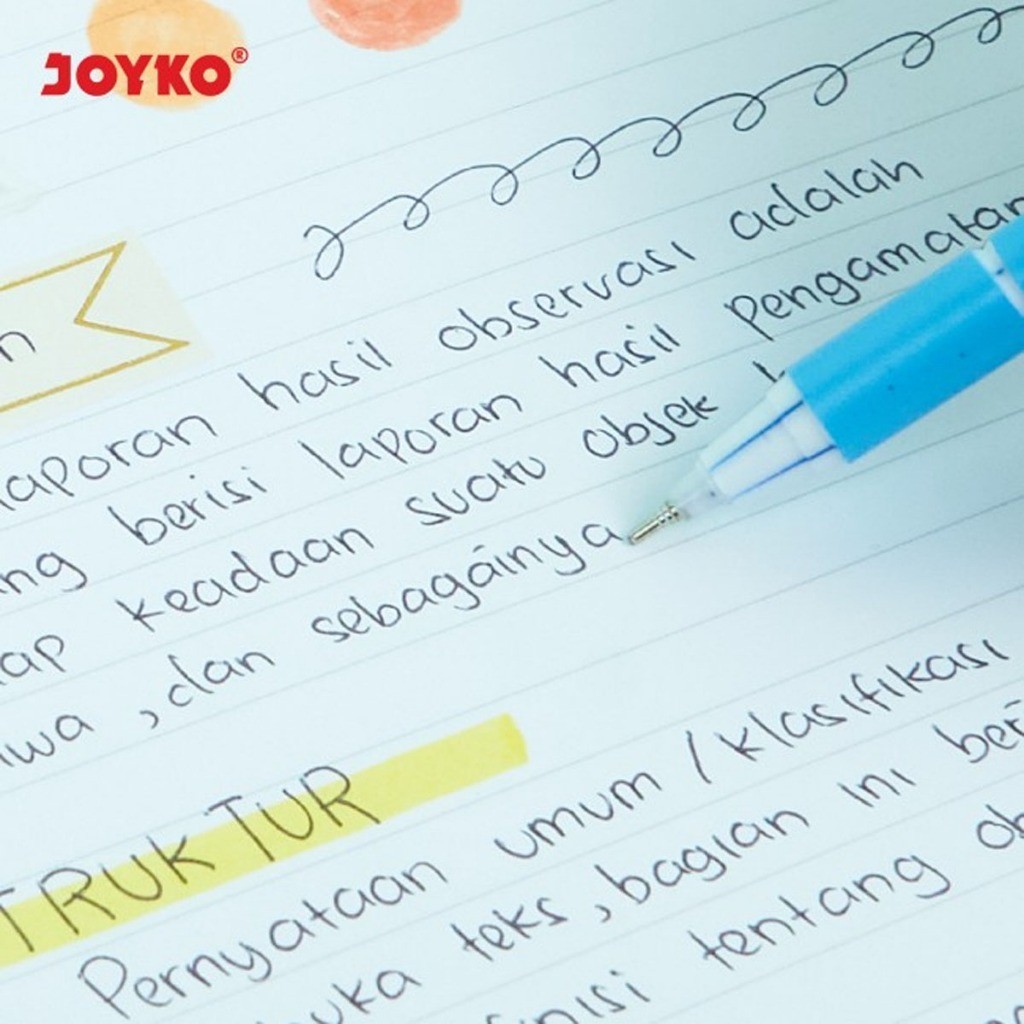 JOYKO®
n
laporan hasil observasi adalah
ng berisi laporan hasil pengamatan
ap keadaan suatu objek
iwa, dan sebagainya
TRUKTUR
Pernyataan umum / klasifikasi
uka teks, bagian ini ber
inisi tentang ob